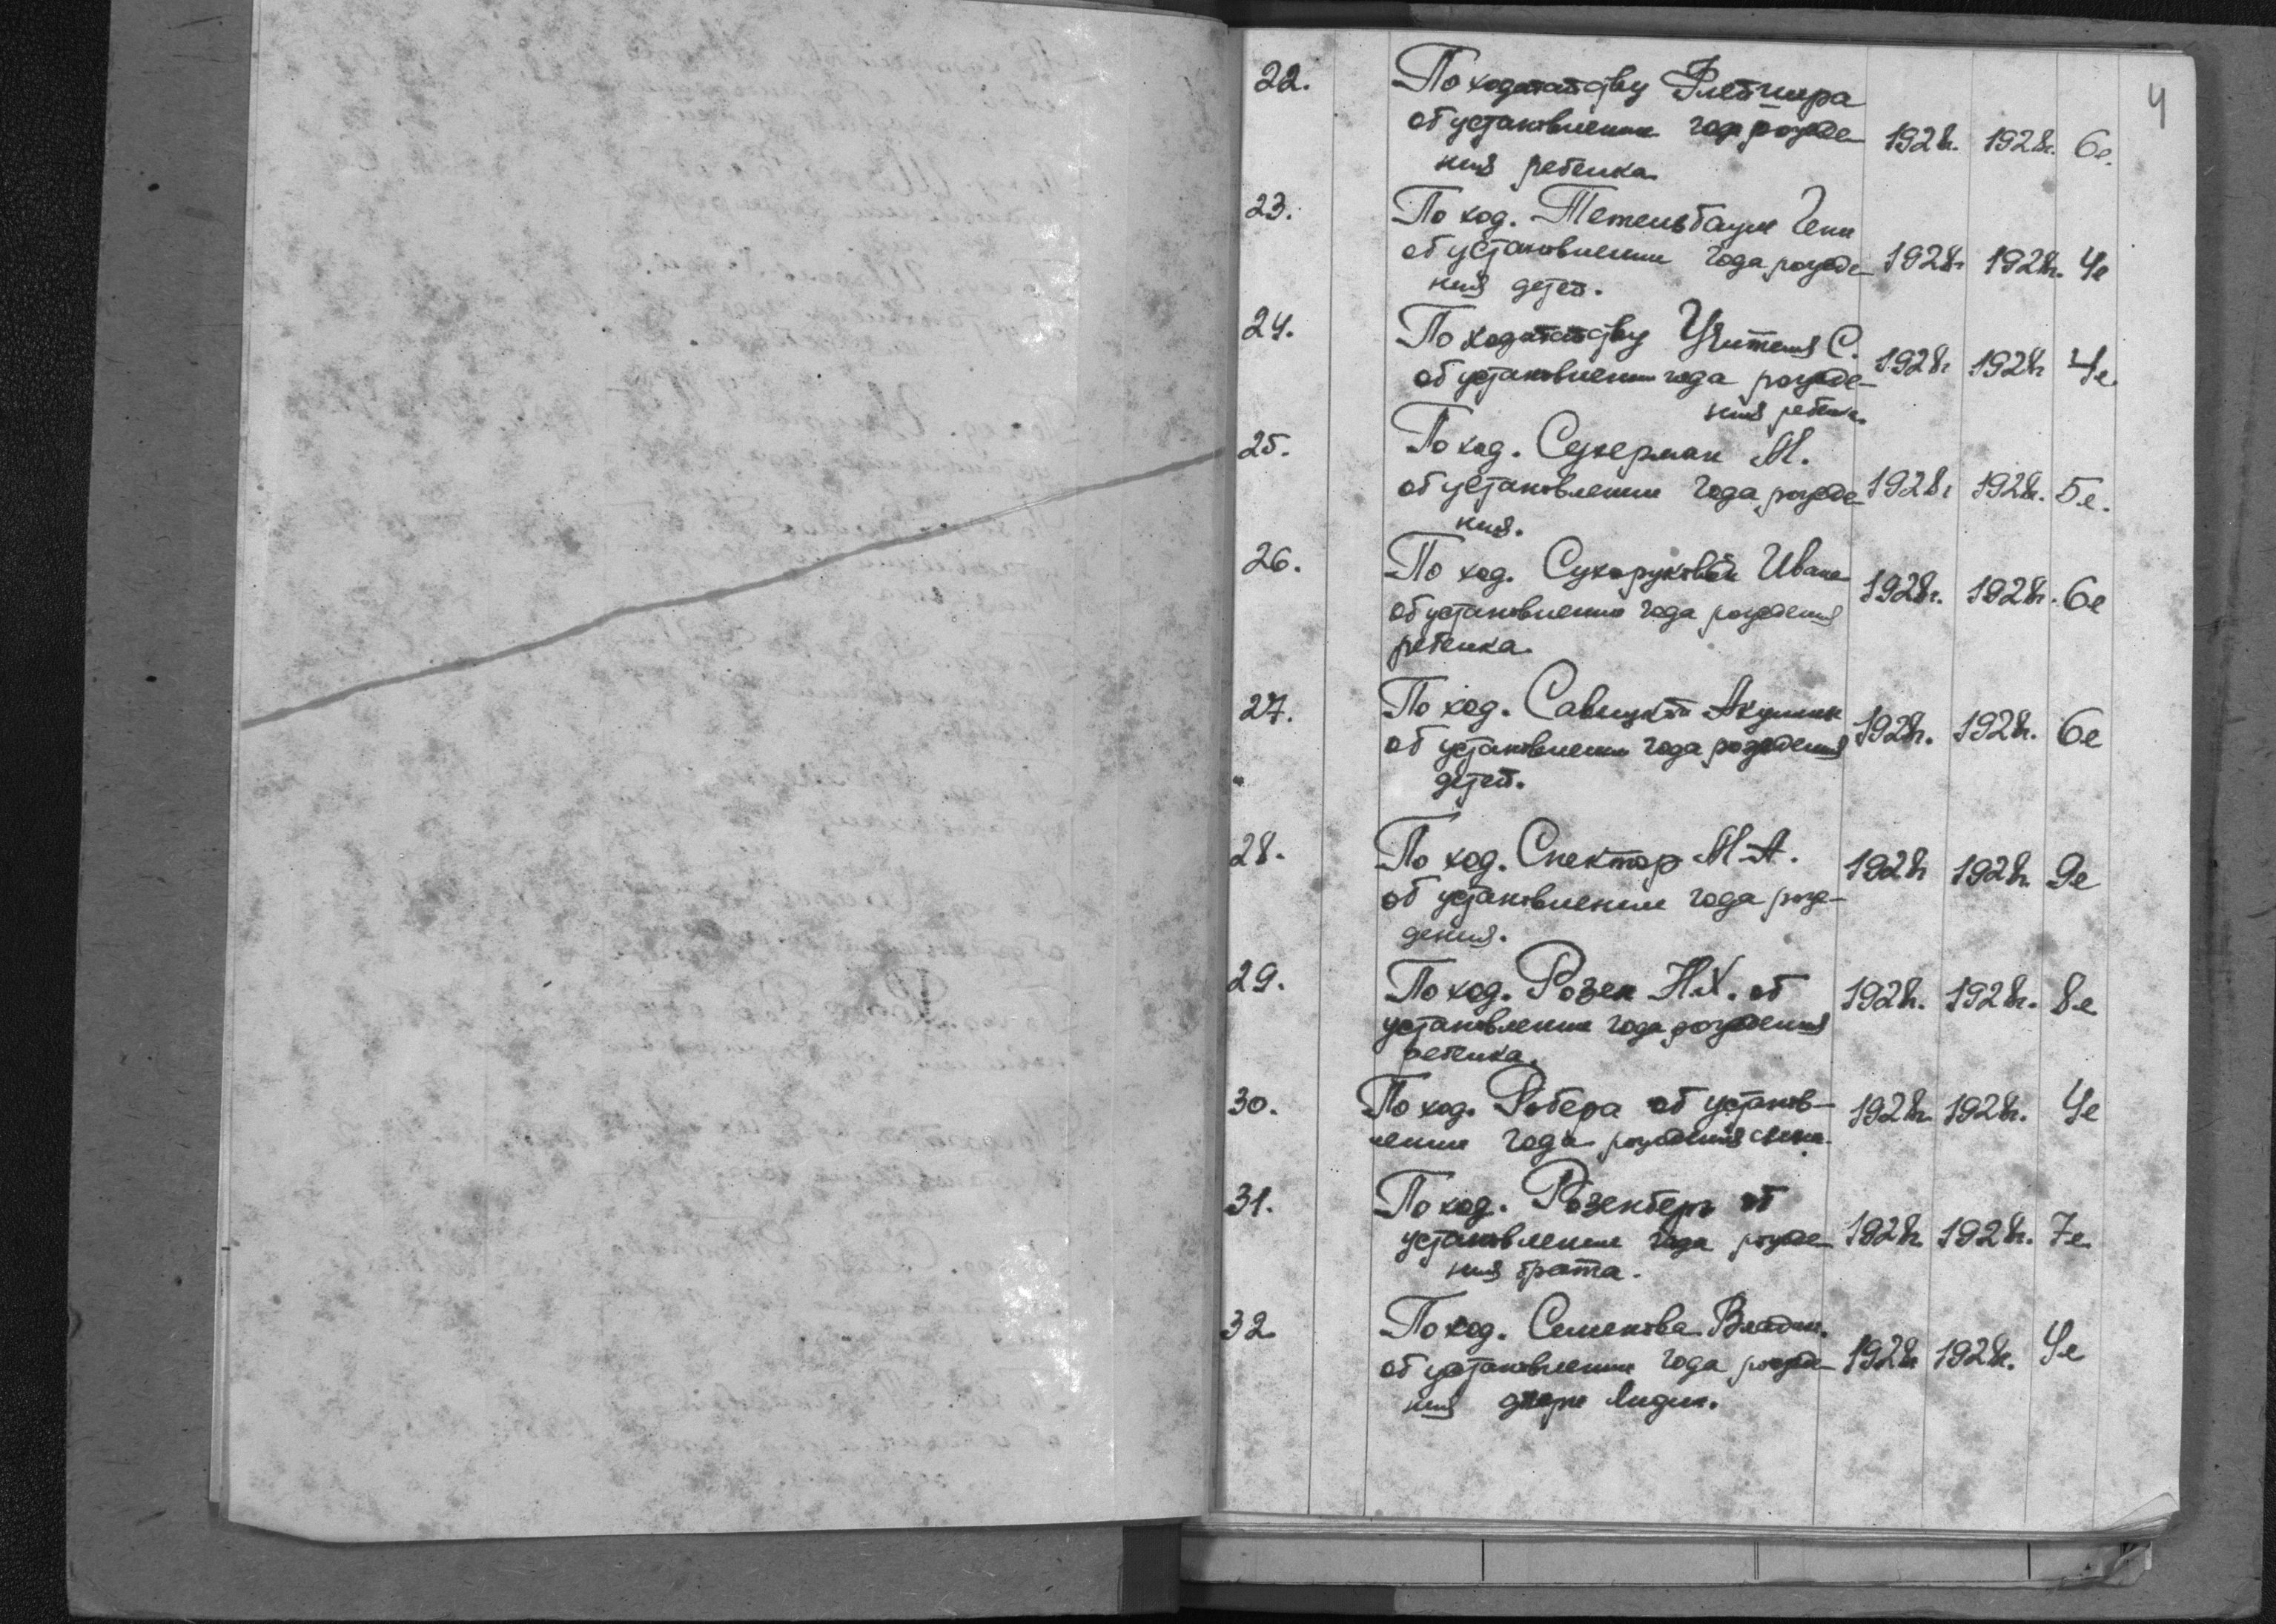 4
22. По ходатайству Флетшера
об установлении года рожде- 1928г. 1928г. 6л.
ния ребенка
23. По ход. Тетельбаум Гени
об установлении года рожде- 1928г 1928г. 4л
ния детей.
24. По ходатайству Учителя С.
об установлении года рожде- 1928г 1928г 4л.
ния ребенка.
25. По ход. Сукерман М.
об установлении года рожде- 1928г 1928г. 5л.
ния.
26. По ход. Сухоруковой Ивана
об установлении года рождения 1928г. 1928г. 6л
ребенка.
27. По ход. Савицкой Акулины
об установлении года рождения 1928г. 1928г. 6л
детей.
28. По ход. Спектор М.А.
об установлении года рож- 1928г 1928г. 9л
дения.
29. По ход. Розен Н.Х. об
установлении года рождения 1928г. 1928г. 8л
ребенка.
30. По ход. Робера об установ-
лении года рождения сына. 1928г. 1928г. 4л
31. По ход. Розенберг об
установлении года рожде- 1928г. 1928г. 7л
ния брата.
32. По ход. Семенова Владим.
об установлении года рожде- 1928г 1928г. 4л
ния дочери Лидии.